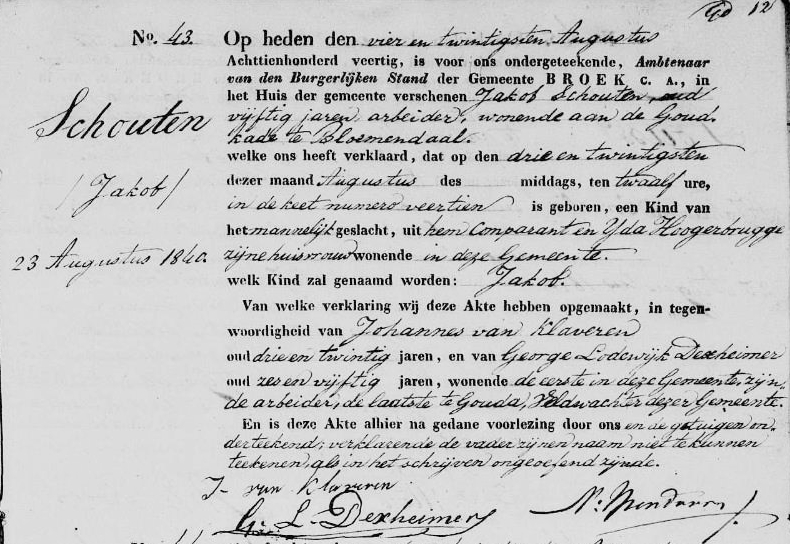 12
No. 43. Op heden den vier en twintigsten Augustus
Achttienhonderd veertig, is voor ons ondergeteekende, Ambtenaar
van den Burgerlijken Stand der Gemeente BROEK C. A., in
het Huis der gemeente verschenen Jakob Schouten, oud
vijftig jaren, arbeider, wonende aan de Goud-
kade te Bloemendaal.
welke ons heeft verklaard, dat op den drie en twintigsten
dezer maand Augustus des middags, ten twaalf ure,
in de keet numero veertien is geboren, een Kind van
het mannelijk geslacht, uit hem Comparant en Yda Hoogerbrugge
zijne huisvrouw wonende in deze Gemeente.
welk Kind zal genaamd worden: Jakob.
Van welke verklaring wij deze Akte hebben opgemaakt, in tegen-
woordigheid van Johannes van Klaveren
oud drie en twintig jaren, en van George Lodewijk Dexheimer
oud zes en vijftig jaren, wonende de eerste in deze Gemeente, zijn-
de arbeider, de laatste te Gouda, Veldwachter dezer Gemeente.
En is deze Akte alhier na gedane voorlezing door ons en de getuigen on-
derteekend; verklarende de vader zijnen naam niet te kunnen
teekenen, als in het schrijven ongeoefend zijnde.
Schouten
/ Jakob /
23 Augustus 1840.
J van Klaveren
G. L. Dexheimer